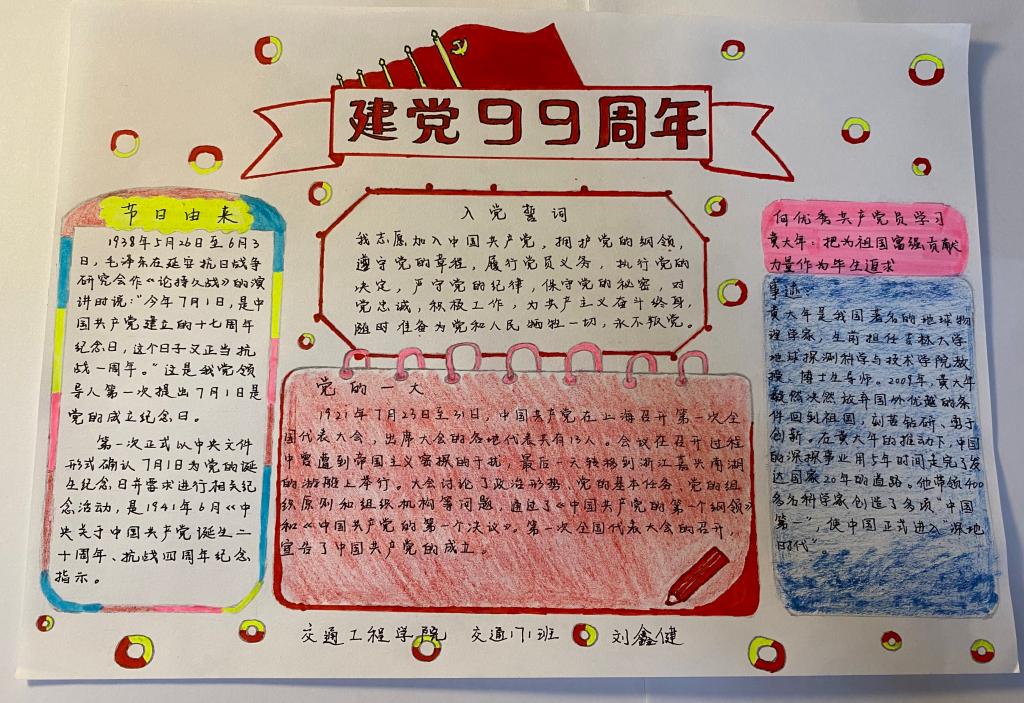 建党99周年
节日由来
1938年5月26日至6月3
日，毛泽东在延安抗日战争
研究会作《论持久战》的演
讲时说："今年7月1日，是中
国共产党建立的十七周年
纪念日，这个日子又正当抗
战一周年。"这是我党领
导人第一次提出7月1日是
党的成立纪念日。
第一次正式以中央文件
形式确认7月1日为党的诞
生纪念日并要求进行相关纪
念活动，是1941年6月《中
央关于中国共产党诞生二
十周年、抗战四周年纪念
指示。
入党誓词
我志愿加入中国共产党，拥护党的纲领，
遵守党的章程，履行党员义务，执行党的
决定，严守党的纪律，保守党的秘密，对
党忠诚，积极工作，为共产主义奋斗终身，
随时准备为党和人民牺牲一切，永不叛党。
党的一大
1921年7月23日至31日，中国共产党在上海召开第一次全
国代表大会，出席大会的各地代表共有13人。会议在召开过程
中曾遭到帝国主义密探的干扰，最后一天转移到浙江嘉兴南湖
的游船上举行。大会讨论了政治形势、党的基本任务、党的组
织原则和组织机构等问题，通过了《中国共产党的第一个纲领》
和《中国共产党的第一个决议》。第一次全国代表大会的召开，
宣告了中国共产党的成立。
向优秀共产党员学习
黄大年：把为祖国富强贡献
力量作为毕生追求
事迹：
黄大年是我国著名的地球物
理学家，生前担任吉林大学
地球探测科学与技术学院教
授、博士生导师。2009年，黄大年
毅然决然放弃国外优越的条
件回到祖国，刻苦钻研、勇于
创新。在黄大年的推动下，中国
的深探事业用5年时间走完了发
达国家20年的道路。他带领400
多名科学家创造了多项"中国
第一"，使中国正式进入"深地
时代"。
交通工程学院 交通171班 刘鑫健